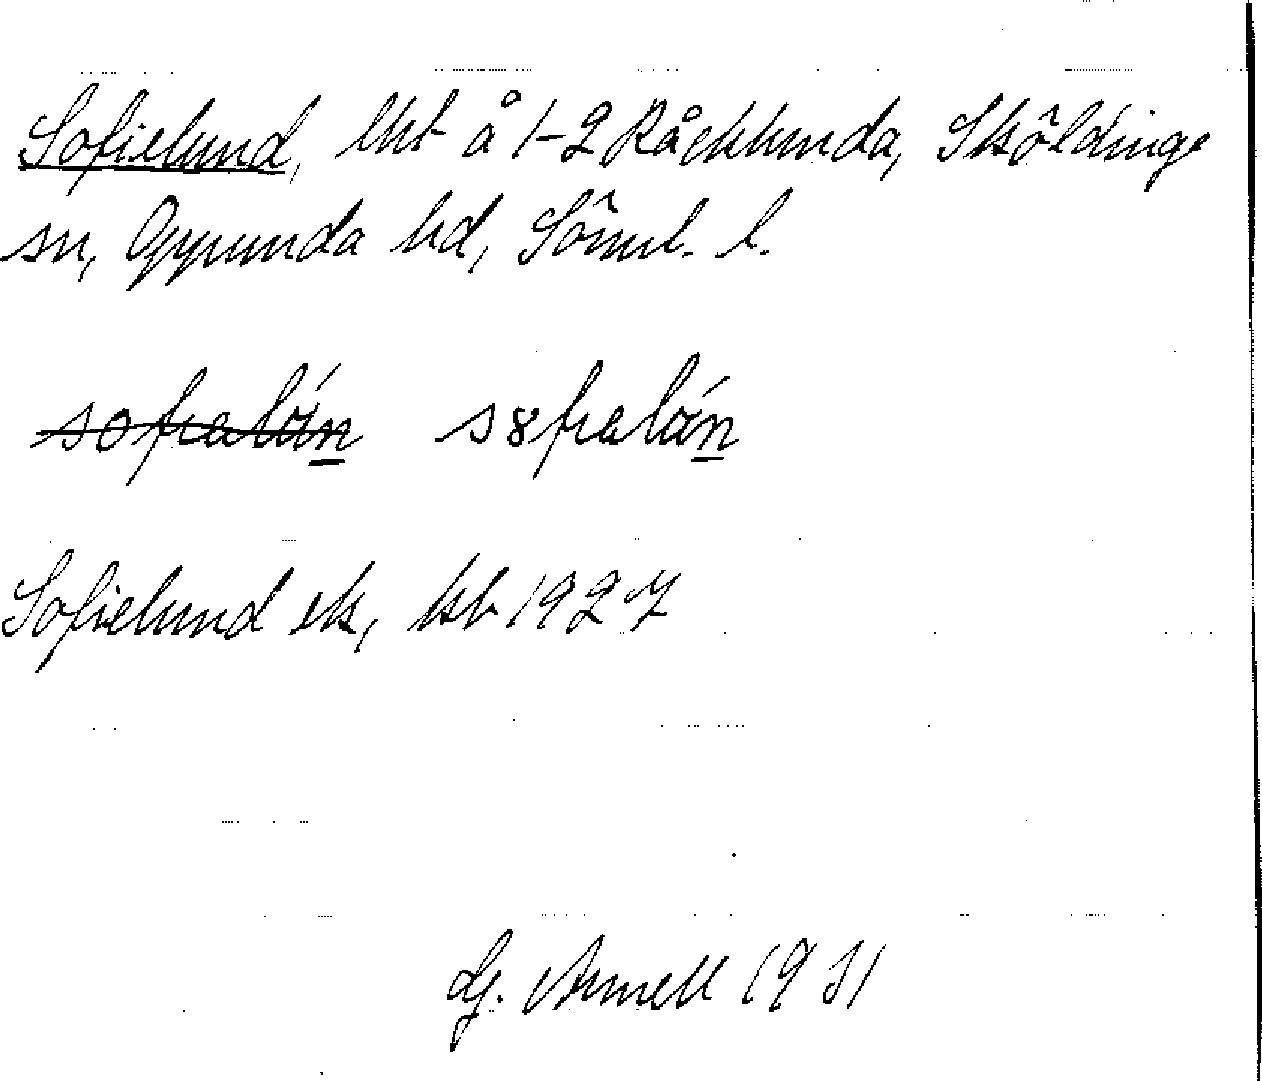 Sofielund, lht å 1-2 Råcklunda, Sköldinge
sn, Oppunda hd, Söml. l.
sofialún s8fialún
Sofielund ek, kb 1927
G. Arnell 1931